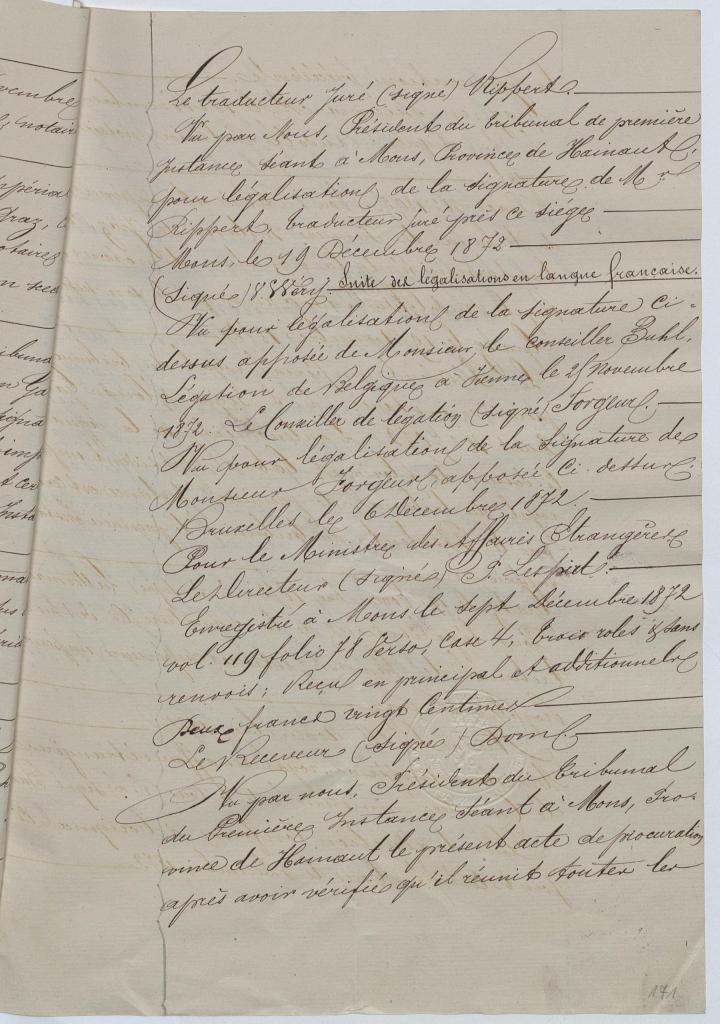 Le traducteur Juré (signé) Rippert.
Vu par Nous, Président du tribunal de première
Instance séant à Mons, Province de Hainaut,
pour légalisation de la signature de Mr
Rippert, traducteur juré près ce siége
Mons, le 19 Décembre 1872
(Signé) Wéry Suite des légalisations en langue française.
Vu pour légalisation de la signature ci-
dessus apposée de Monsieur le conseiller Buhl,
Légation de Belgique à Vienne le 25 Novembre
1872. Le Conseiller de légation (signé) Forgeur.
Vu pour légalisation de la signature de
Monsieur Forgeur, apposée Ci-dessus.
Bruxelles le 6 Décembre 1872.
Pour le Ministre des Affaires Etrangères
Le Directeur (signé) P. Lespirt.
Enregistré à Mons le sept Décembre 1872
vol. 119 folio 78 Verso, Case 4, trois roles & sans
renvois; Reçu en principal et additionnels
Deux francs vingt Centimes
Le Receveur (signé)
Vu par nous, Président du tribunal
du Première Instance Séant à Mons, Pro-
vince de Hainaut le présent acte de procuration
après avoir vérifié qu'il réunit toutes les
171
vembre
notair
mpérial
notaires